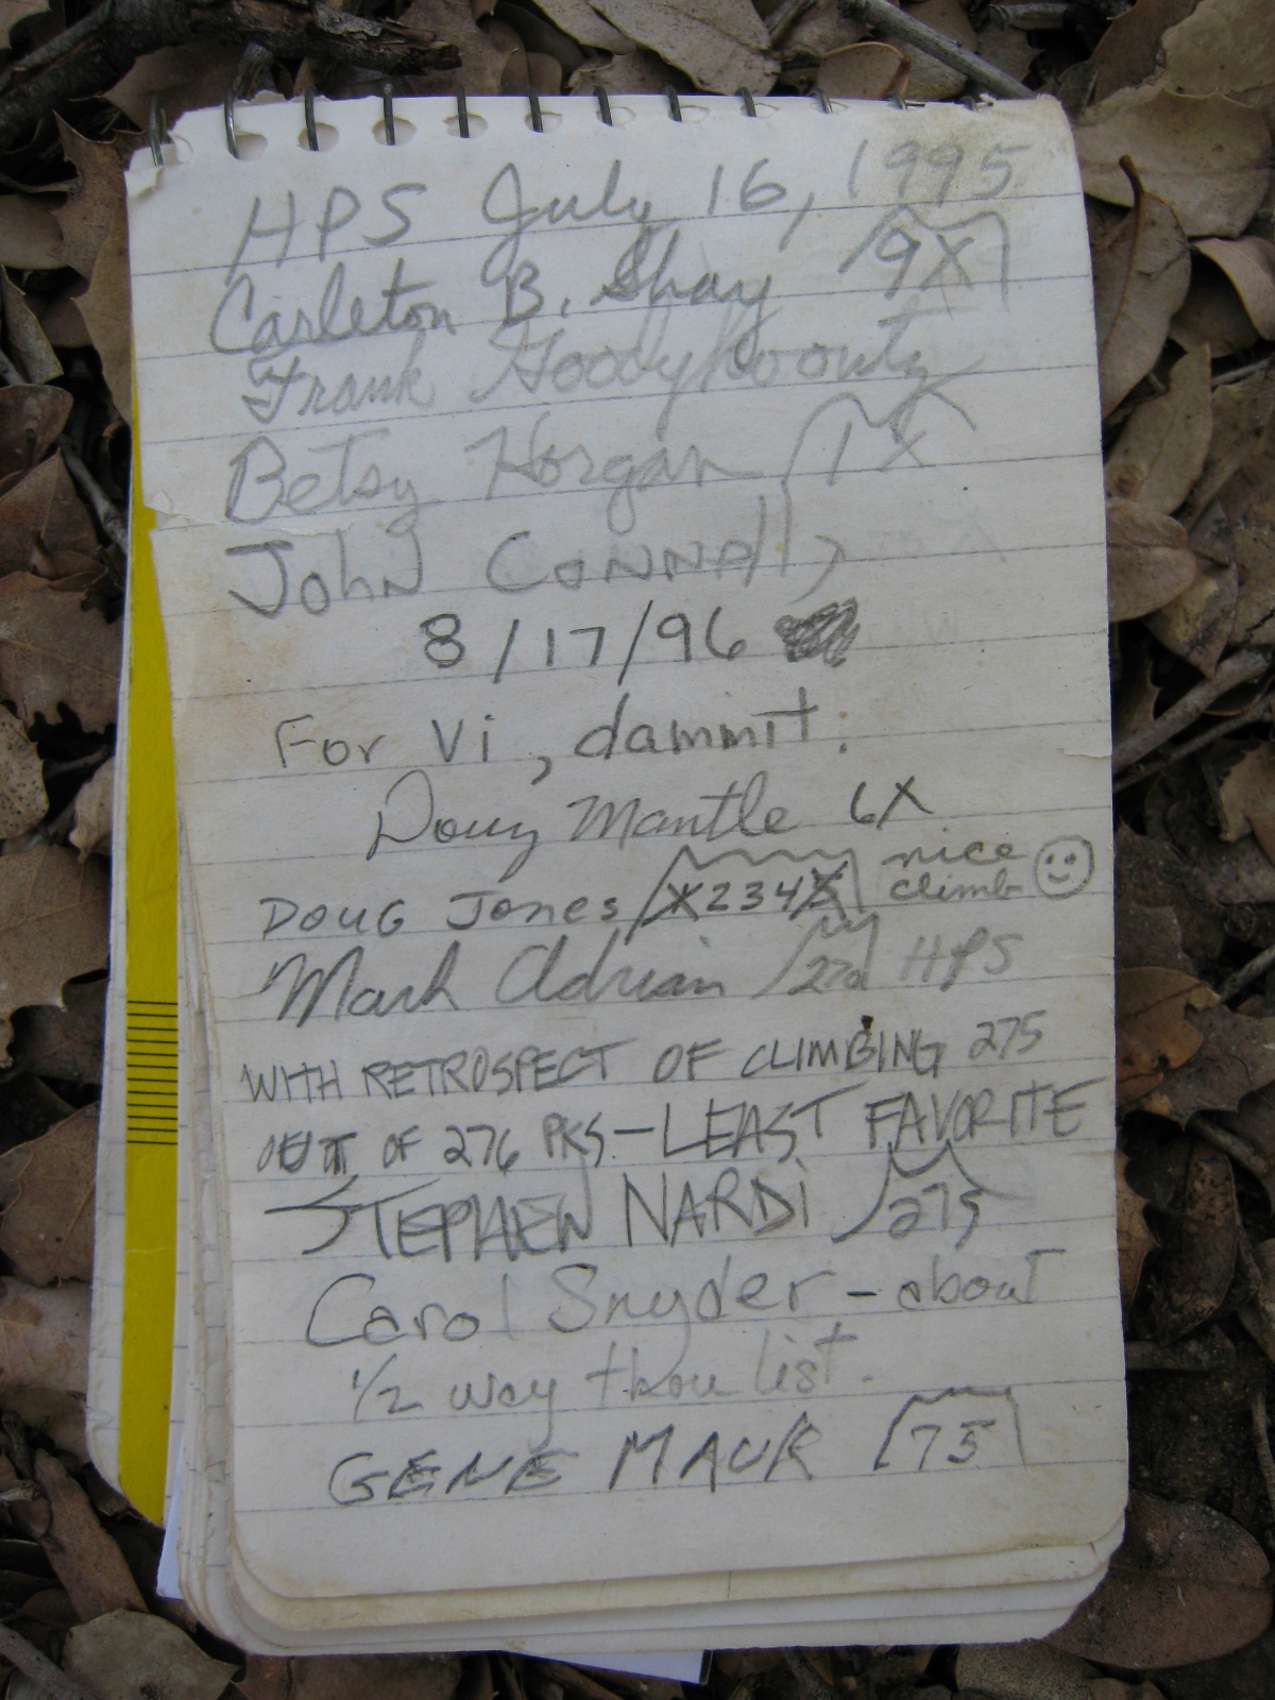 HPS July 16, 1995
Carleton B. Shay 9X
Frank Goodykoontz
Betsy Horgan 1X
John Connally
8/17/96
For Vi, dammit.
Doug Mantle 6X
Doug Jones X234X nice climb
Mark Adrian 2nd HPS
WITH RETROSPECT OF CLIMBING 275
OUT OF 276 PKS - LEAST FAVORITE
STEPHEN NARDI 275
Carol Snyder - about
1/2 way thou list.
GENE MAUK 75